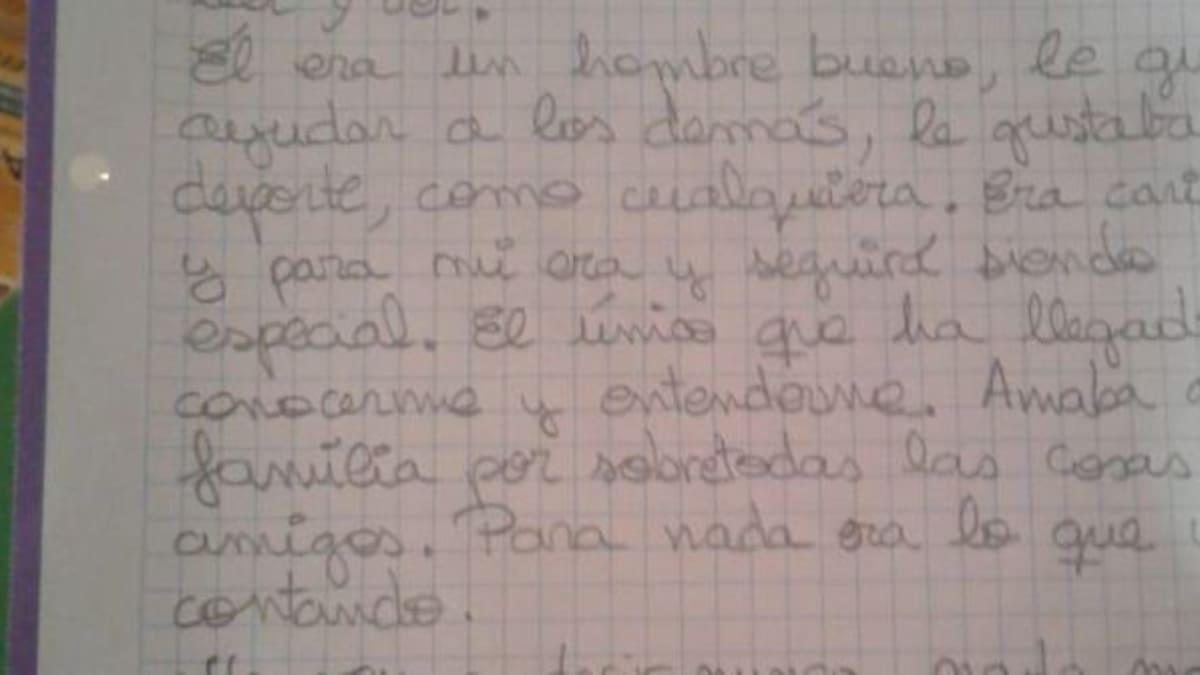 y
Él era un hombre bueno, le gu
ayudar a los demás, le gustaba
deporte, como cualquiera. Era cari
y para mi era y seguirá siendo
especial. El único que ha llegad
conocerme y entenderme. Amaba a
familia por sobretodas las cosas
amigos. Para nada era lo que
contando.
decir